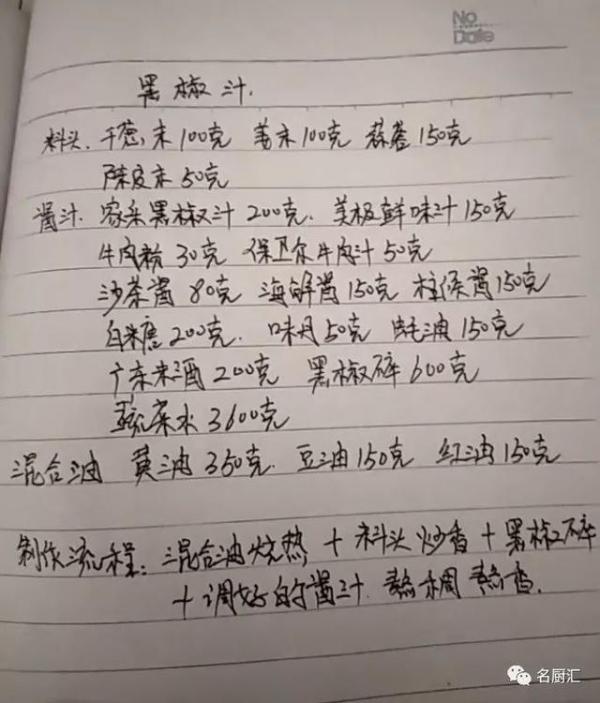 No
Date
黑椒汁.
料头. 干葱末100克 姜末100克 蒜蓉150克
陈皮末50克
酱汁. 家乐黑椒汁200克. 美极鲜味汁150克
牛肉粉30克 保卫尔牛肉汁50克
沙茶酱80克 海鲜酱150克 柱侯酱150克
白米唐200克. 味丹50克 蚝油150克
广东米酒200克 黑椒碎600克
蔬菜水3600克
混合油 黄油350克. 豆油150克 红油150克
制作流程: 混合油烧热 + 料头炒香 + 黑椒碎
+ 调好的酱汁. 熬稠熬香.
名厨汇